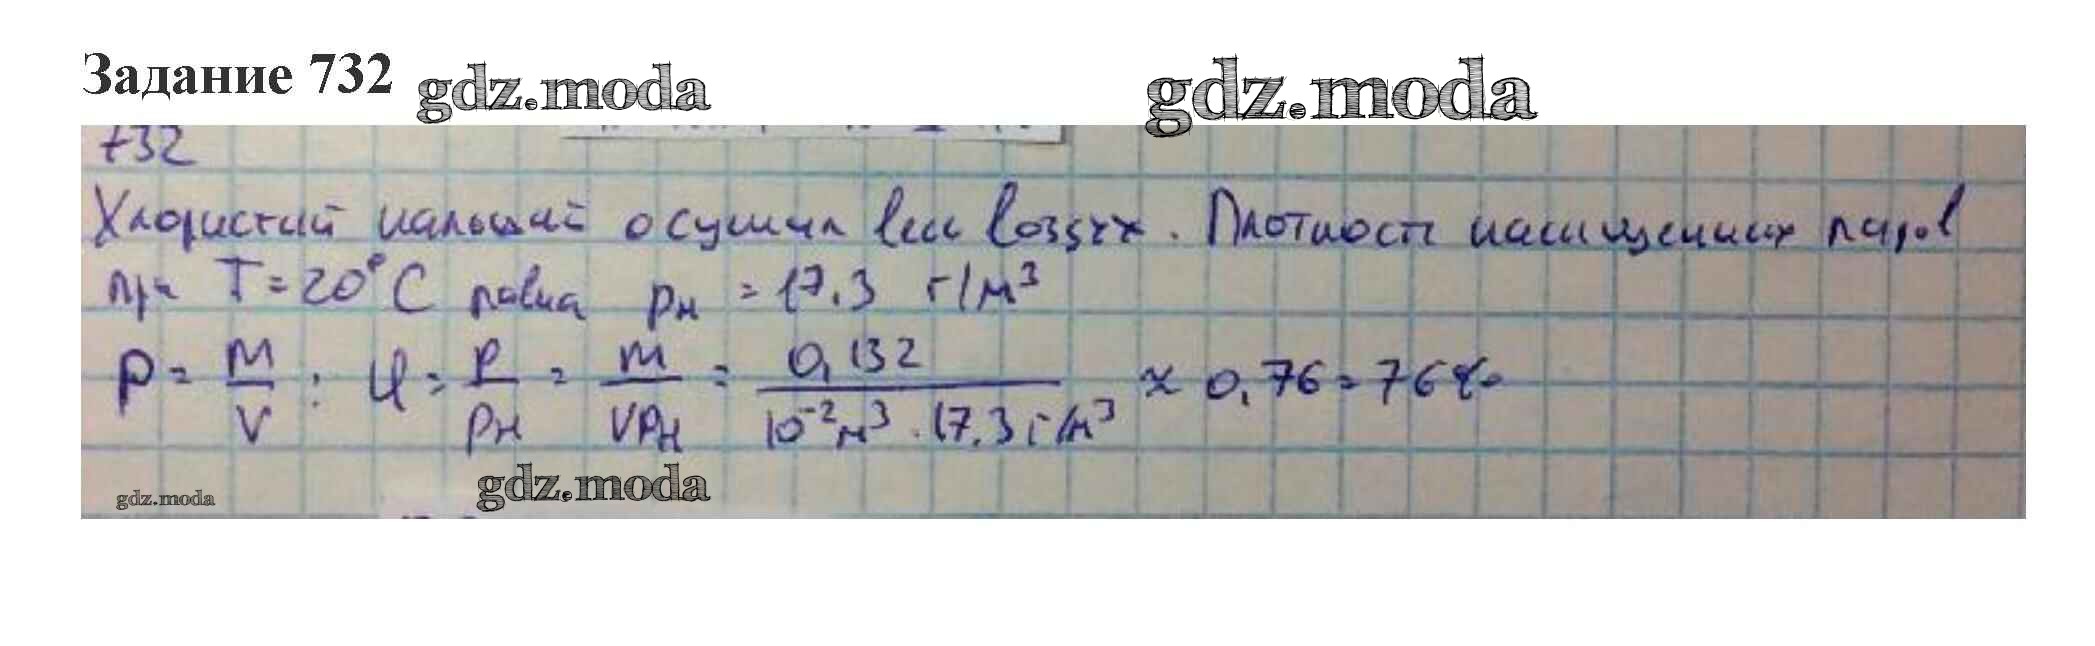 Задание 732 gdz.moda gdz.moda
732
Хлористый кальций осушил весь воздух. Плотность насыщенных паров
при T = 20°C равна ρн = 17.3 г/м³
ρ = m/V ; φ = ρ/ρн = m/Vρн = 0,132/10⁻²м³ · 17.3 г/м³ ≈ 0,76 = 76%
gdz.moda gdz.moda